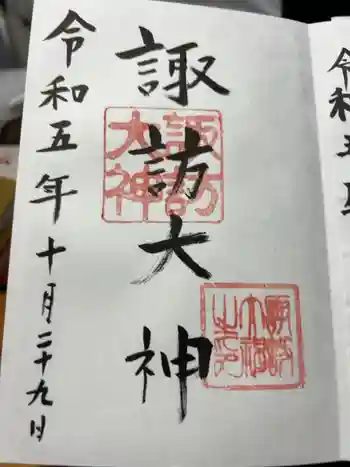 諏訪大神
令和五年十月二十九日
諏訪
大神
令和五年